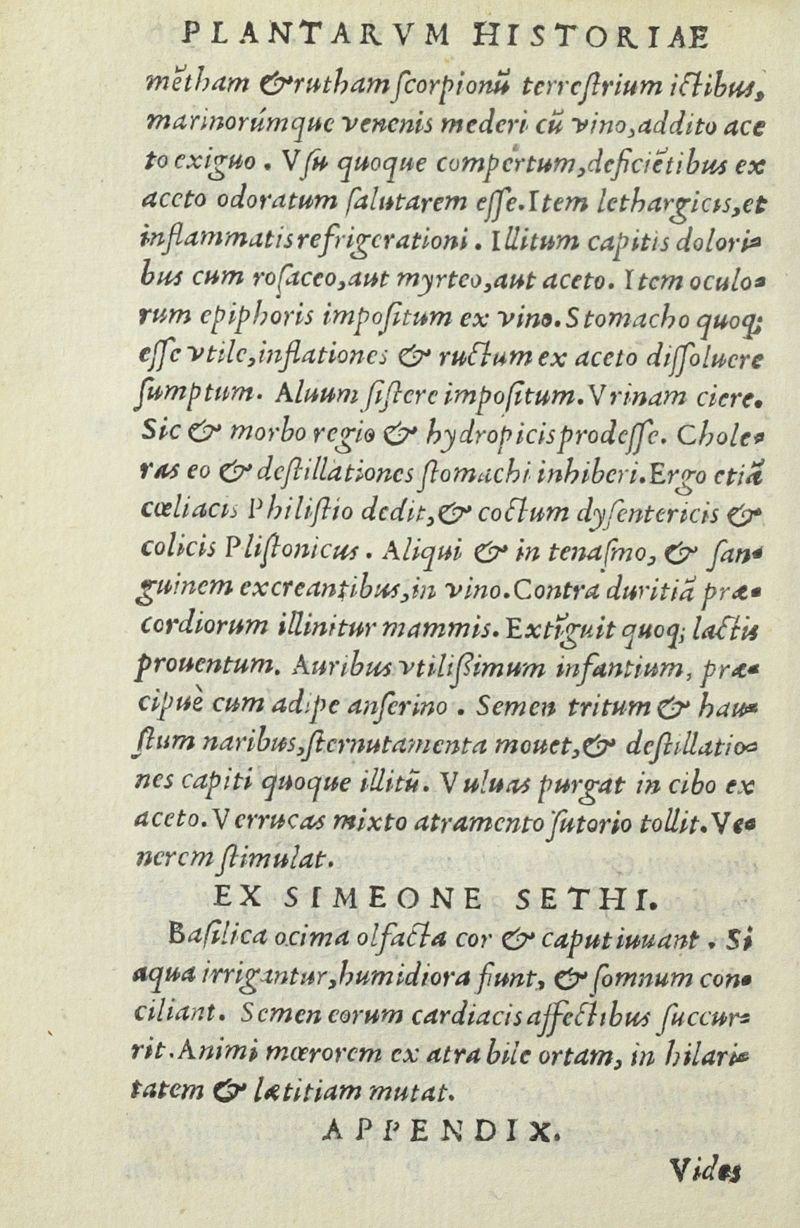 PLANTARVM HISTORIAE
mẽtham & rutham scorpionũ terrestrium ictibus,
marinorúmque venenis mederi cũ vino, addito ace
to exiguo. Vsu quoque compertum, deficiẽtibus ex
aceto odoratum salutarem esse. Item lethargicis, et
inflammatis refrigerationi. Illitum capitis dolori-
bus cum rosaceo, aut myrteo, aut aceto. Item oculo-
rum epiphoris impositum ex vino. Stomacho quoq;
esse vtile, inflationes & ructum ex aceto dissoluere
sumptum. Aluum sistere impositum. Vrinam ciere.
Sic & morbo regio & hydropicis prodesse. Chole-
ras eo & destillationes stomachi inhiberi. Ergo etiã
cœliacis Philistio dedit, & coctum dysentericis &
colicis Plistonicus. Aliqui & in tenasmo, & san-
guinem excreantibus, in vino. Contra duritiã præ-
cordiorum illinitur mammis. Extĩguit quoq; lactis
prouentum. Auribus vtilißimum infantium, præ-
cipuè cum adipe anserino. Semen tritum & hau-
stum naribus, sternutamenta mouet, & destillatio-
nes capiti quoque illitũ. Vuluas purgat in cibo ex
aceto. Verrucas mixto atramento sutorio tollit. Ve-
nerem stimulat.
EX SIMEONE SETHI.
Basilica ocima olfacta cor & caput iuuant. Si
aqua irrigantur, humidiora fiunt, & somnum con-
ciliant. Semen eorum cardiacis affectibus succur-
rit. Animi mœrorem ex atra bile ortam, in hilari-
tatem & lætitiam mutat.
APPENDIX.
Vides